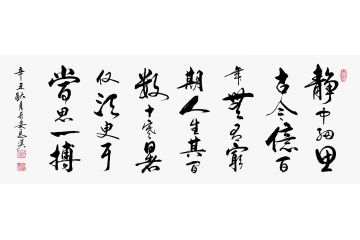 静中细思
古今億百
年無有窮
期人生其间
数十寒暑
仅须臾耳
當思一搏
辛丑秋月長安